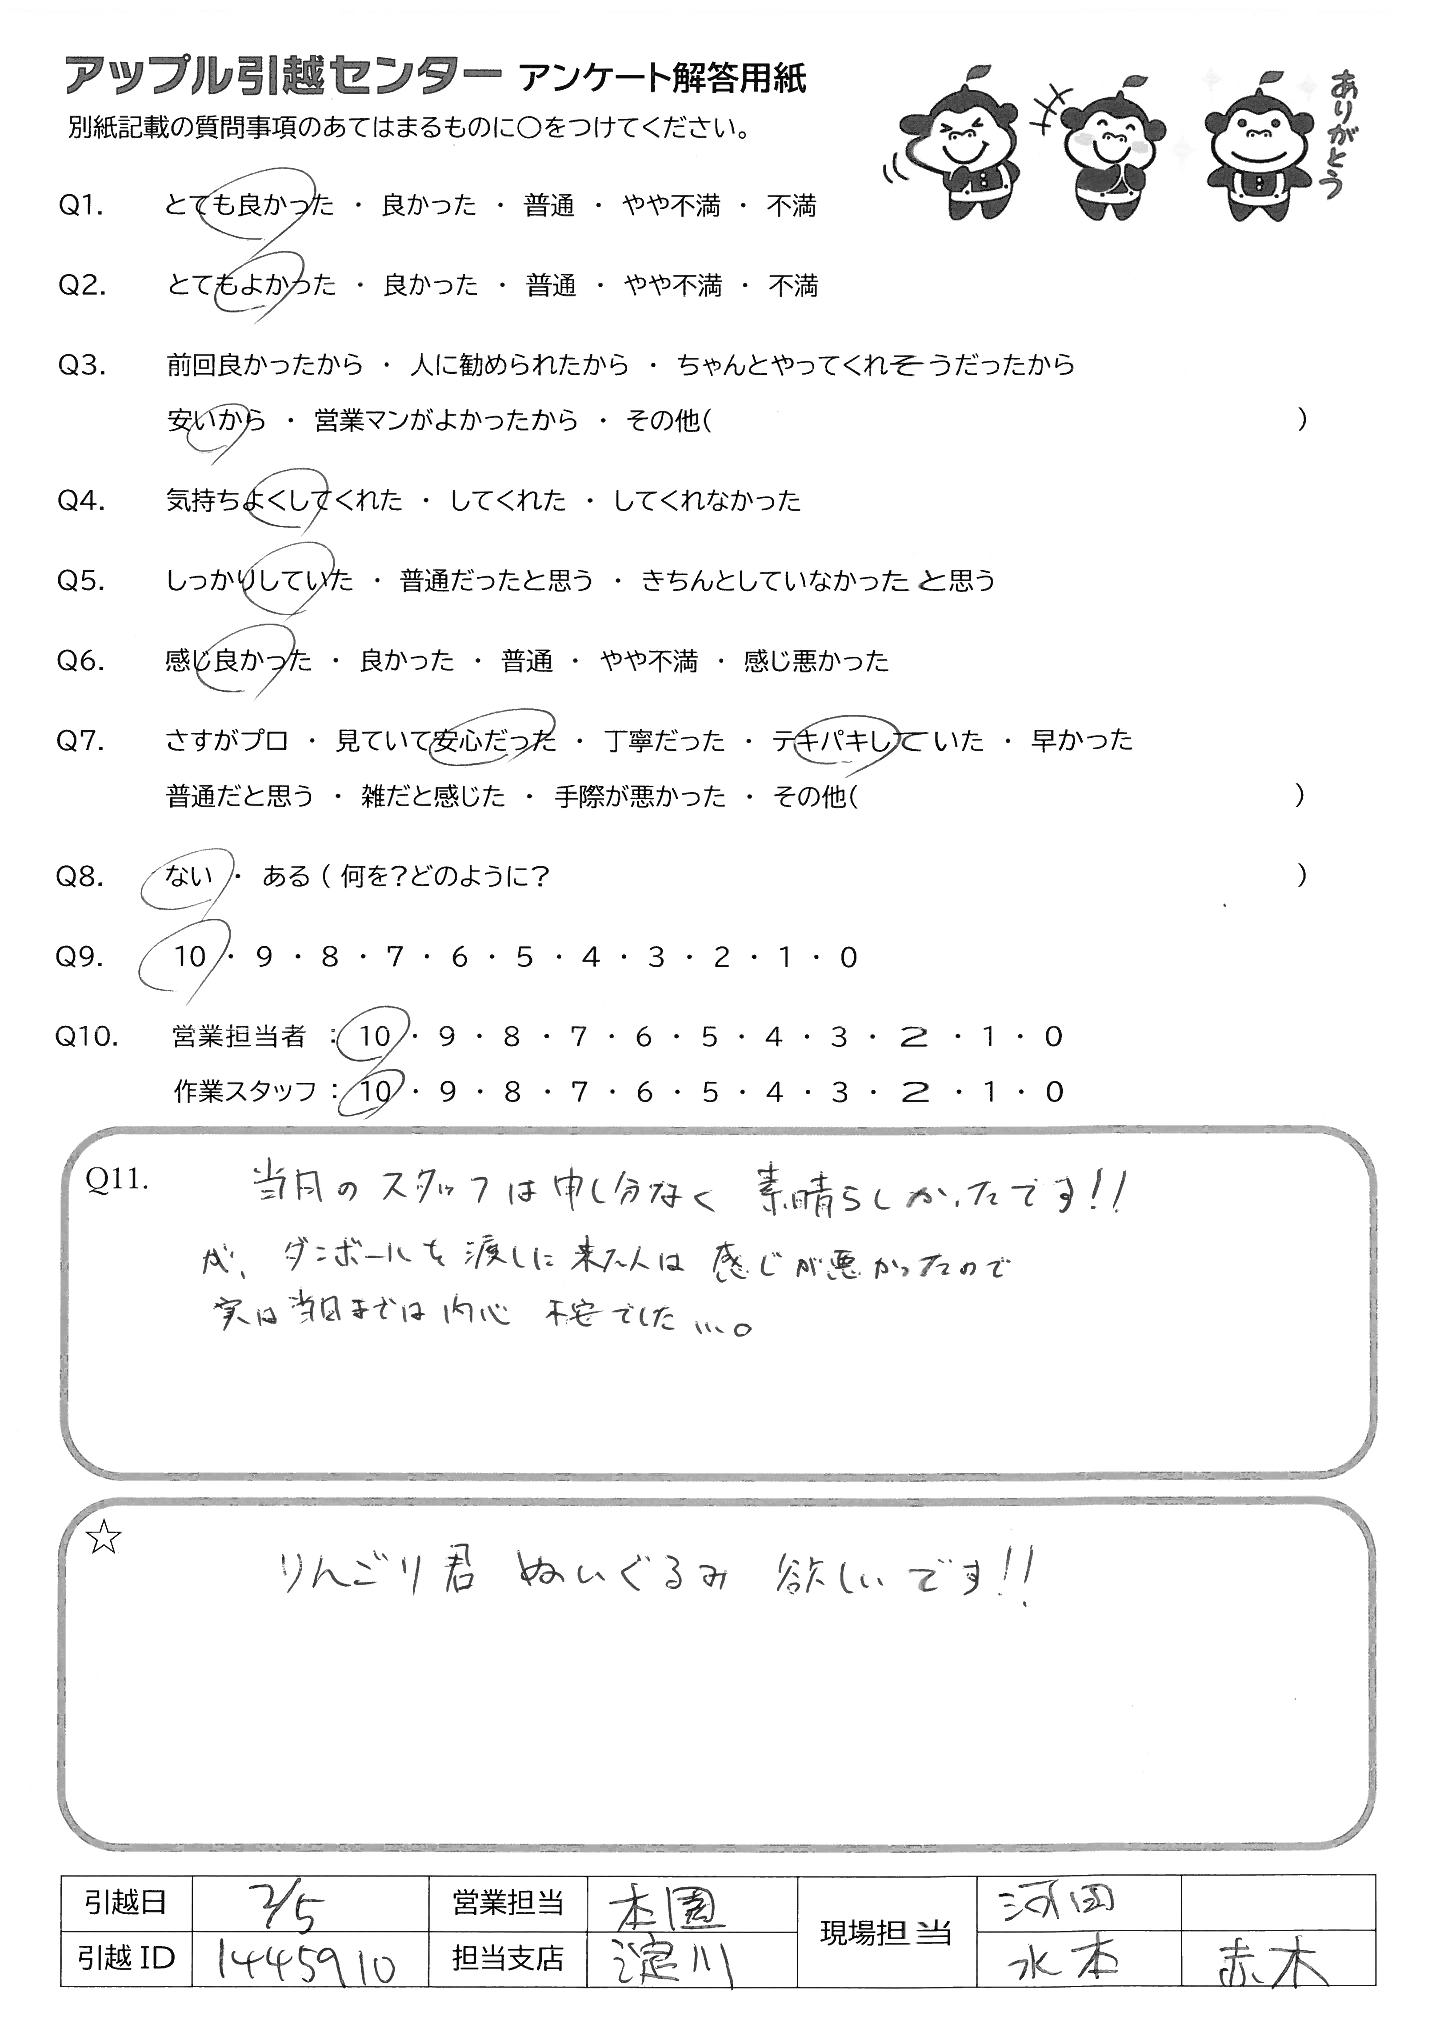 アップル引越センター アンケート解答用紙
ありがとう
別紙記載の質問事項のあてはまるものに〇をつけてください。
Q1. とても良かった ・ 良かった ・ 普通 ・ やや不満 ・ 不満
Q2. とてもよかった ・ 良かった ・ 普通 ・ やや不満 ・ 不満
Q3. 前回良かったから ・ 人に勧められたから ・ ちゃんとやってくれそうだったから
安いから ・ 営業マンがよかったから ・ その他( )
Q4. 気持ちよくしてくれた ・ してくれた ・ してくれなかった
Q5. しっかりしていた ・ 普通だったと思う ・ きちんとしていなかったと思う
Q6. 感じ良かった ・ 良かった ・ 普通 ・ やや不満 ・ 感じ悪かった
Q7. さすがプロ ・ 見ていて安心だった ・ 丁寧だった ・ テキパキしていた ・ 早かった
普通だと思う ・ 雑だと感じた ・ 手際が悪かった ・ その他( )
Q8. ない ・ ある ( 何を?どのように? )
Q9. 10 ・ 9 ・ 8 ・ 7 ・ 6 ・ 5 ・ 4 ・ 3 ・ 2 ・ 1 ・ 0
Q10. 営業担当者 : 10 ・ 9 ・ 8 ・ 7 ・ 6 ・ 5 ・ 4 ・ 3 ・ 2 ・ 1 ・ 0
作業スタッフ : 10 ・ 9 ・ 8 ・ 7 ・ 6 ・ 5 ・ 4 ・ 3 ・ 2 ・ 1 ・ 0
Q11. 当日のスタッフは申し分なく 素晴らしかったです!!
が、ダンボールを渡しに来た人は 感じが悪かったので
実は当日までは内心 不安でした…。
☆ りんごり君 ぬいぐるみ 欲しいです!!
引越日 2/5 営業担当 本園 現場担当 河田
引越ID 1445910 担当支店 淀川 水本 赤木